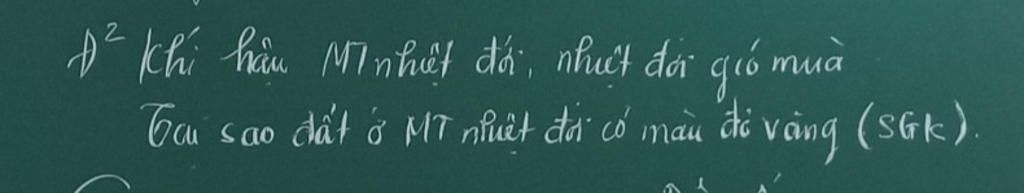 Đ² Khí hậu MT nhiệt đới, nhiệt đới gió mùa
Tại sao đất ở MT nhiệt đới có màu đỏ vàng (SGK).